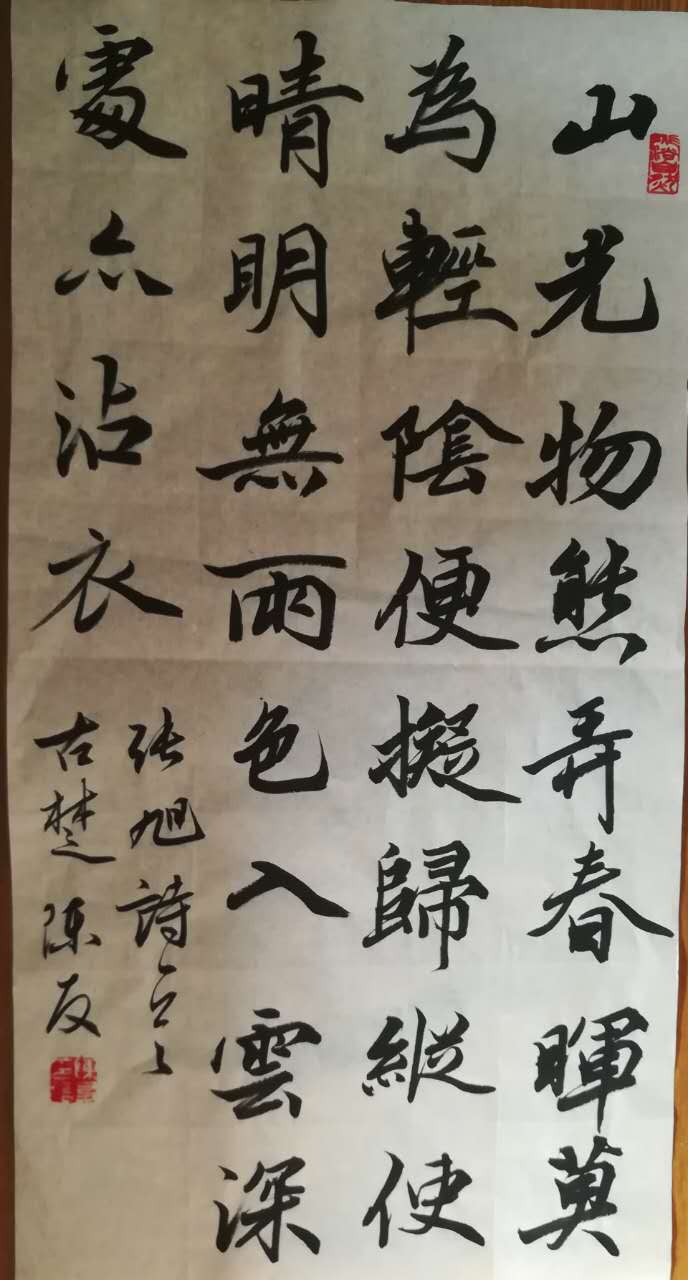 山光物態弄春暉莫
為輕陰便擬歸縱使
晴明無雨色入雲深
處亦沾衣
張旭詩一首
古楚陳友